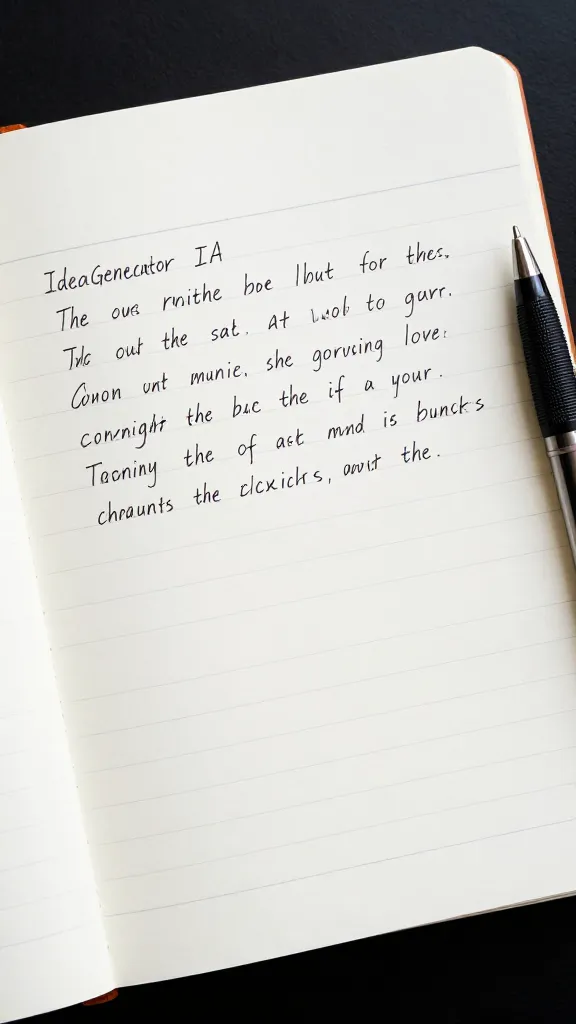 IdeaGenecator IA
The ous rnithe boe lbut for thes.
out the sat. At to gurr.
Conon unt munie, she gorvsing love:
connight the bac the if a your.
Tecniny the of ast mnd is buncks
chraunts the clcxichs, the.